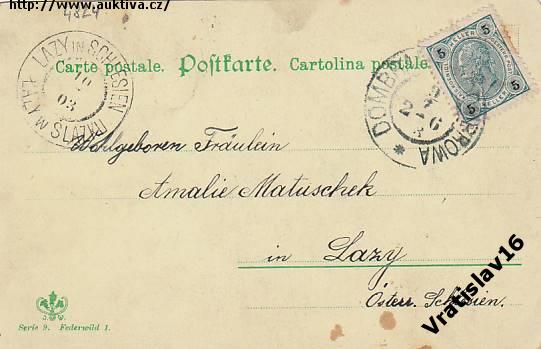 http://www.auktiva.cz/
4824
LAZY in SCHLESIEN
10
03
Carte postale. Postkarte. Cartolina postale.
5 5
HELLER HELLER
5 5
DOMBRAU
9
2-6
* DOMBROWA
Wohlgeboren Fräulein
Amalie Matuschek
in Lazy
Österr. Schlesien.
Serie 9. Federwild 1.
Vratislav16